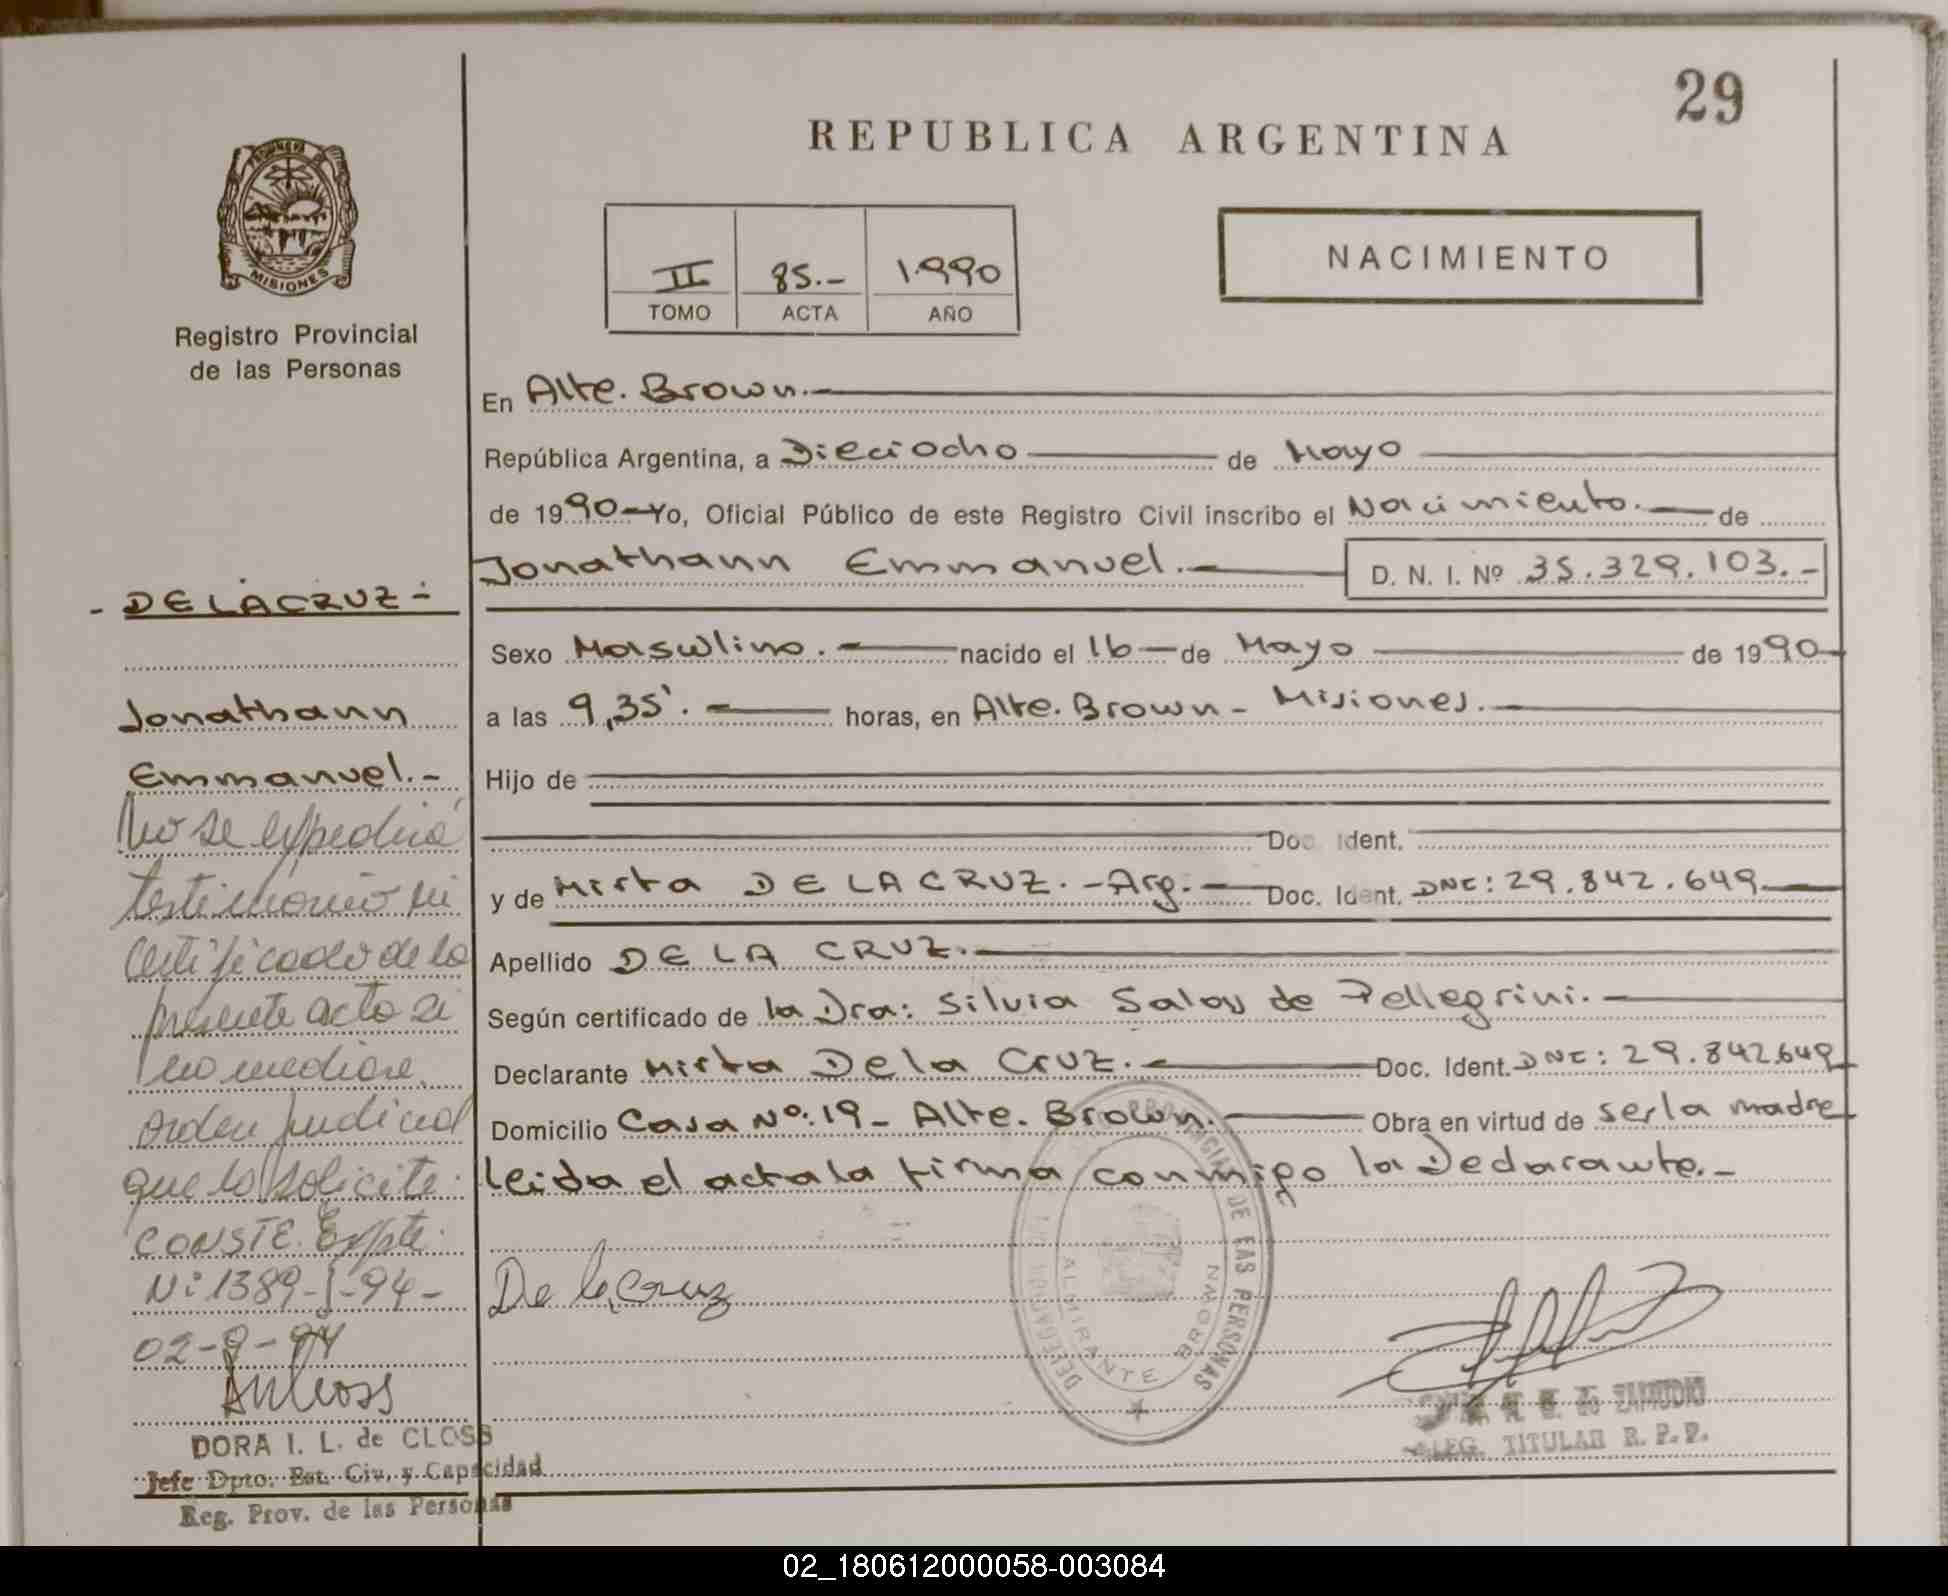 29
REPUBLICA ARGENTINA
PROVINCIA DE
MISIONES
Registro Provincial
de las Personas
II 85.- 1.990
TOMO ACTA AÑO
NACIMIENTO
En Alte. Brown.-
República Argentina, a Dieciocho de Mayo
de 1990 - Yo, Oficial Público de este Registro Civil inscribo el Nacimiento.- de
Jonathann Emmanuel.- D. N. I. Nº 35.329.103.-
Sexo Masculino.- nacido el 16 - de Mayo de 1990
a las 9,35'.- horas, en Alte. Brown - Misiones.-
Hijo de
Doc. Ident.
y de Mirta DE LA CRUZ.- Arg.- Doc. Ident. DNI: 29.842.649
Apellido DE LA CRUZ.-
Según certificado de la Dra: Silvia Saloj de Pellegrini.-
Declarante Mirta De la Cruz.- Doc. Ident. DNI: 29.842.649
Domicilio Casa Nº: 19 - Alte. Brown.- Obra en virtud de ser la madre
leida el acta la firma conmigo la Declarante.-
De la Cruz
- DE LA CRUZ -
Jonathann
Emmanuel.-
No se expedirá
testimonio ni
certificado de la
presente acta si
no mediare
orden judicial
que lo solicite.
CONSTE. Expte.
Nº 1389-J-94-
02-9-94
DORA I. L. de CLOSS
Jefe Dpto. Est. Civ. y Capacidad
Reg. Prov. de las Personas
PROVINCIAL DE LAS PERSONAS
DELEGACION
ALMIRANTE BROWN
de ZAMUDIO
DELEG. TITULAR R. P. P.
02_180612000058-003084